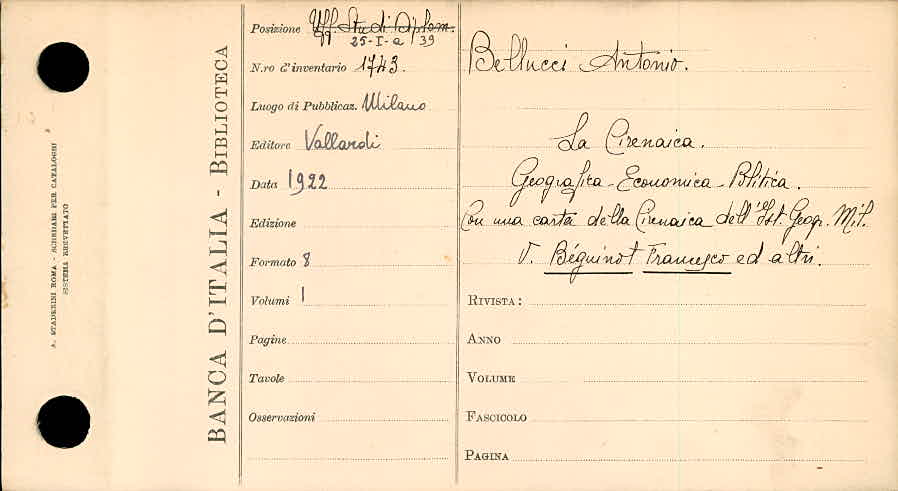 A. STADERINI ROMA - SCHEDARI PER CATALOGHI
SISTEMA BREVETTATO
BANCA D'ITALIA - BIBLIOTECA
Posizione Uff. Studi Diplom.
25-I-a 39
N.ro d'inventario 1743.
Luogo di Pubblicaz. Milano
Editore Vallardi
Data 1922
Edizione
Formato 8
Volumi 1
Pagine
Tavole
Osservazioni
Bellucci Antonio.
La Cirenaica.
Geografica - Economica - Politica.
Con una carta della Cirenaica dell'Ist. Geogr. Mil.
V. Béguinot Francesco ed altri.
RIVISTA:
ANNO
VOLUME
FASCICOLO
PAGINA